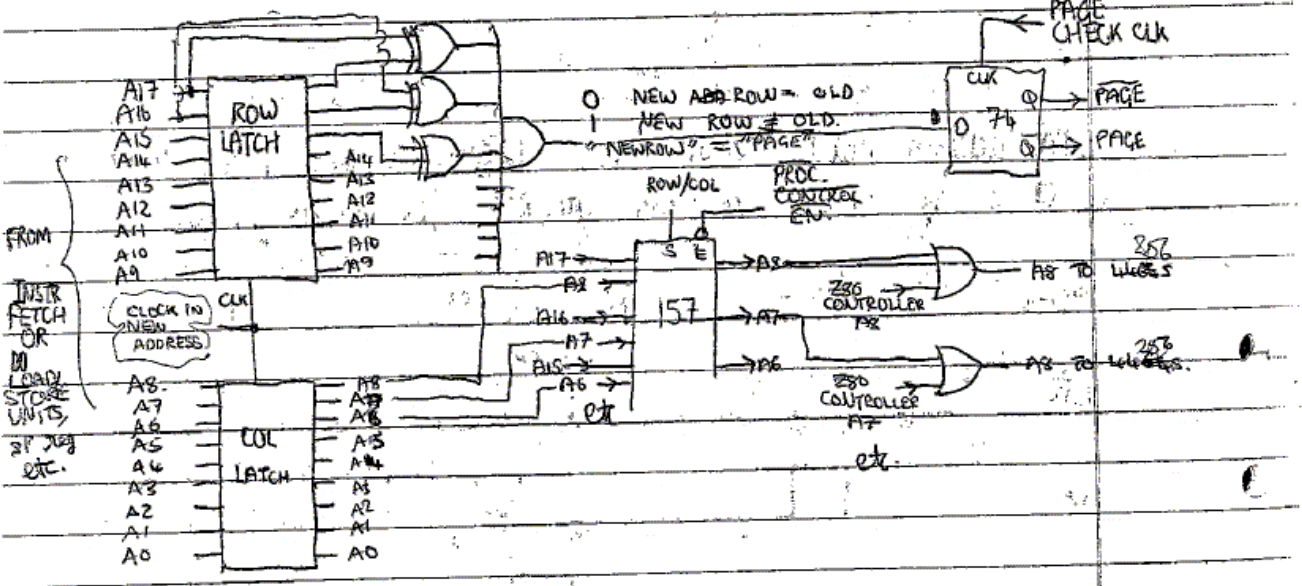 PAGE
CHECK CLK
A17
A16
A15
A14
A13
A12
A11
A10
A9
ROW
LATCH
A14
A13
A12
A11
A10
A9
0 NEW ROW = OLD
1 NEW ROW ≠ OLD
"NEWROW" = "PAGE"
CLK
D 74
Q
Q̅
P̅A̅G̅E̅
PAGE
FROM
INSTR
FETCH
OR
LOAD/
STORE
UNITS,
etc.
CLOCK IN
NEW
ADDRESS
CLK
ROW/COL
PROC.
CONTROL
EN.
S E
157
A17
A8
A16
A7
A15
A6
etc
A8
A7
A6
Z80
CONTROLLER
A8
A8 TO 256
Z80
CONTROLLER
A7
A8 TO 256
etc.
A8
A7
A6
A5
A4
A3
A2
A1
A0
COL
LATCH
A8
A3
A2
A1
A0